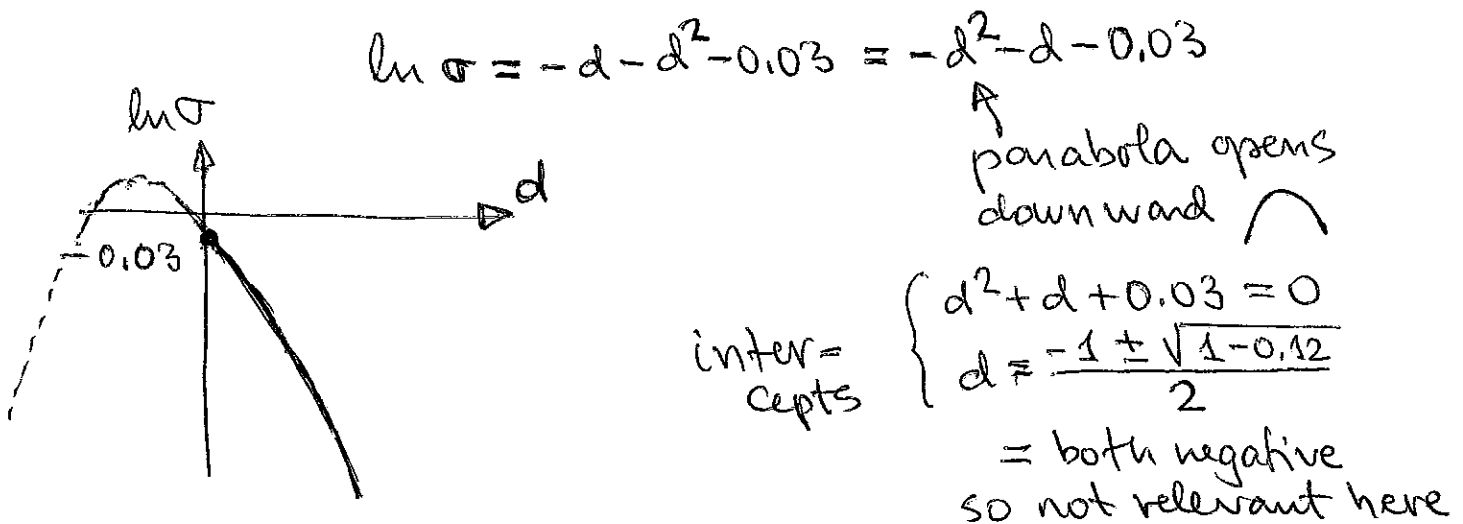 ln σ = -d-d²-0.03 = -d²-d-0.03
ln σ
d
parabola opens
downward
-0.03
inter-
cepts
d²+d+0.03 = 0
d = (-1 ± √(1-0.12))/2
= both negative
so not relevant here